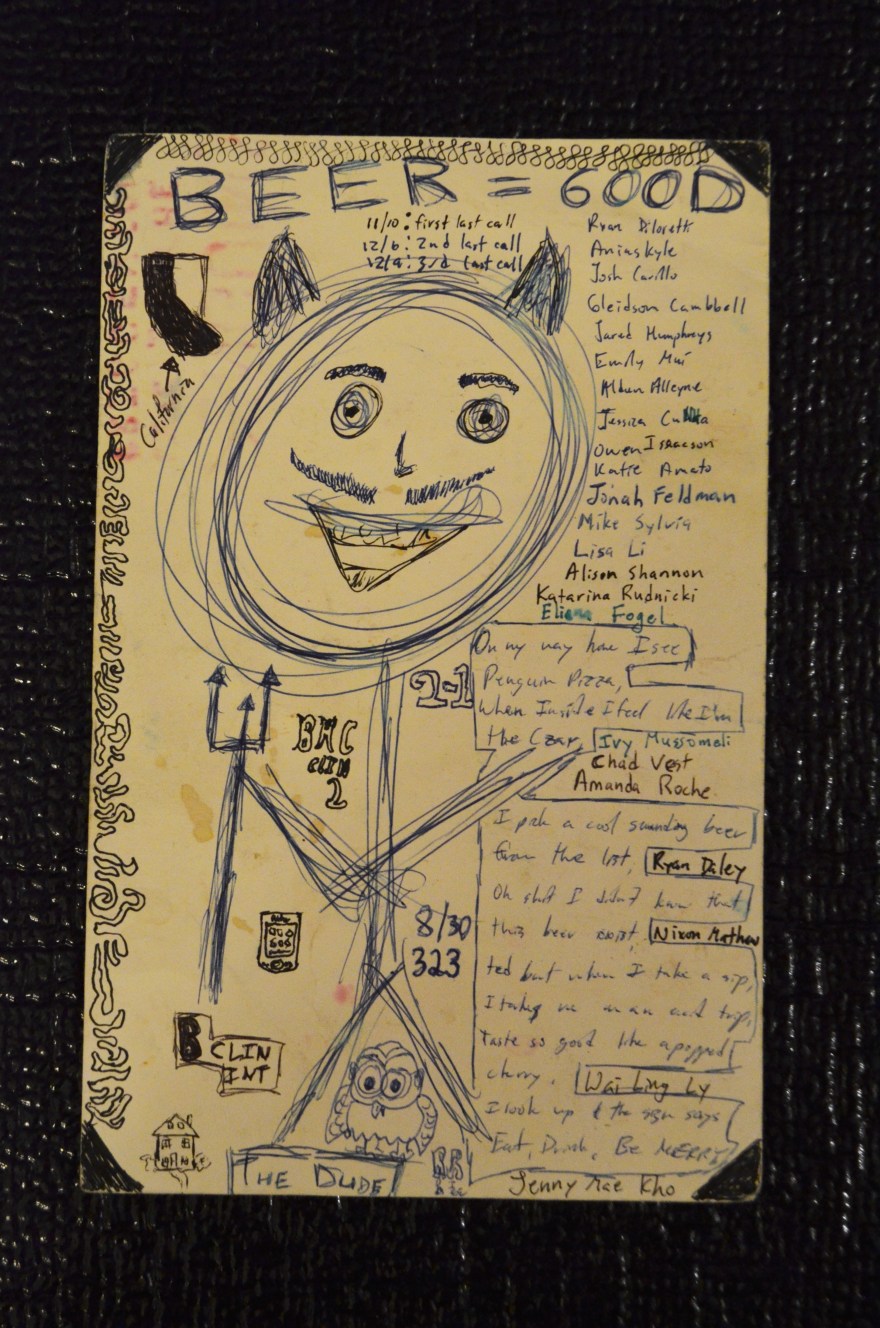 BEER = GOOD
11/10: first last call
12/6: 2nd last call
12/9: 3rd last call
California
Ryan
Kyle
Josh
Gleidson Cambbell
Jared Humphreys
Emily Mui
Alleyne
Jessica
Owen Isaacson
Katie Amato
Jonah Feldman
Mike Sylvia
Lisa Li
Alison Shannon
Katarina Rudnicki
Eliana Fogel
On my way home I see
Penguin Pizza,
When Inside I feel like I'm
the Czar,
Ivy Mussomeli
Chad Vest
Amanda Roche
2-1
BHC
CLIN
2
I pick a cool sounding beer
from the list,
Ryan Daley
Oh shit I didn't know that
this beer exist,
Nixon Mathew
ted but when I take a sip,
I takes me on an acid trip,
Taste so good like a popped
cherry.
Wai Ling Ly
I look up & the sign says
Eat, Drink, Be MERRY
Jenny Mae Kho
8/30
323
B CLIN
INT
THE DUDE